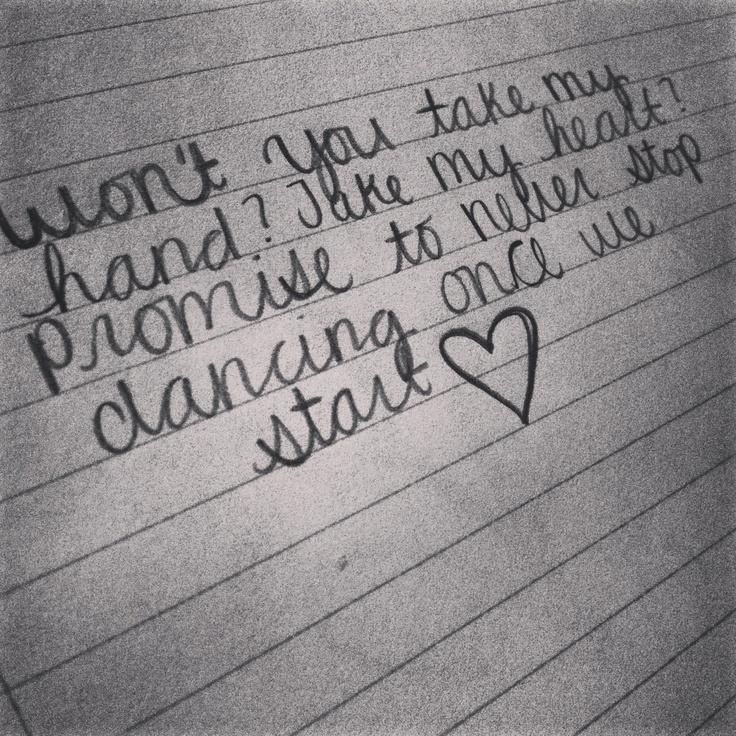 won't you take my
hand? Take my heart?
promise to never stop
dancing once we
start